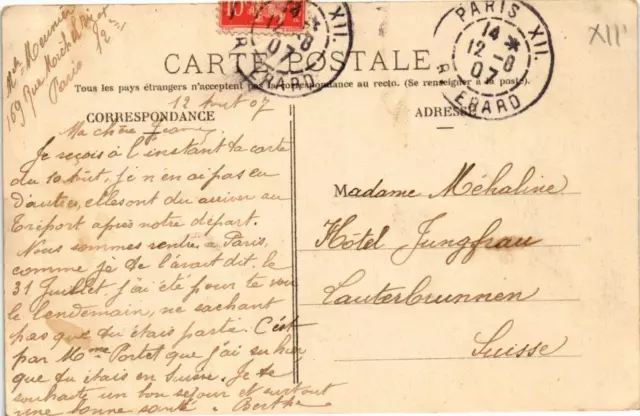 Mlle Meunier
169 Rue
Paris
12
10
PARIS XII.
14 *
12 - 8
07
R. ERARD
XII
CARTE POSTALE
Tous les pays étrangers n'acceptent pas la correspondance au recto. (Se renseigner à la poste).
12 Aout 07
CORRESPONDANCE
ADRESSE
Ma chère
Je reçois à l'instant ta carte
du 10 Août, je n'en ai pas eu
d'autres, elles ont du arriver au
Tréport après notre départ.
Nous sommes rentrés à Paris,
comme je te l'avait dit le
31 Juillet j'ai été pour te voir
le lendemain, ne sachant
pas que tu étais partie. C'est
par Mme Portet que j'ai su hier
que tu étais en Suisse. Je te
souhaite un bon sejour et surtout
une bonne santé. Berthe
Madame Méhaline
Hôtel Jungfrau
Lauterbrunnen
Suisse